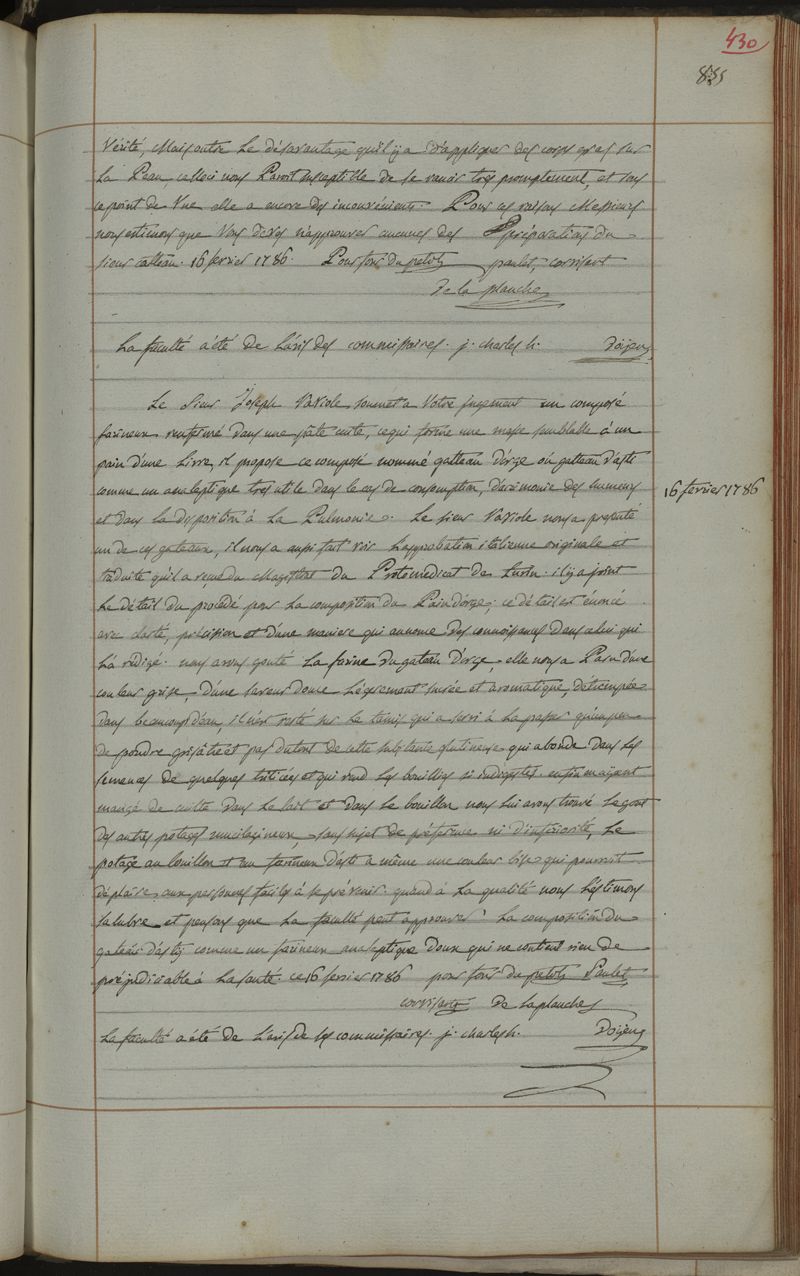 430
835
Vérité, Mais outre Le désavantage qu'il y a d'appliquer des corps gras sur
La Peau, celleci nous Paroit susceptible de se rancir tres promptement, et sous
ce point de Vue elle a encore des inconvénients. Pour ces raisons Messieurs
nous estimons que Vous devés n'approuver aucunes des Préparations du
sieur catteau. 16 fevrier 1786. paulet, corvisart
De la planche
La faculté a été de L'avis des commissaires. j. charles h. Doijen
Le sieur Joseph Vaxiole soumét a Votre jugement un composé
farineux renfermé dans une pâte cuite, ce qui forme une masse semblable à un
pain d'une Livre, il propose ce composé nommé gatteau d'orge où gatteau d'asti
comme un analeptique tres utile dans le cas de consomption, d'acrimonie des humeurs
16 fevrier 1786
et dans la disposition à La Pulmonie. Le sieur Vaxiole nous a presenté
un de ces gateaux, il nous a aussi fait voir L'approbation italienne originale et
traduite qu'il a reçue du Magistrat du Protomedicat de Turin. il y a joint
Le détail du procédé pour La composition du Pain d'orge; ce détail est énoncé
avec clarté, précision et d'une maniere qui annonce des connoissances dans celui qui
L'a rédigé. nous avons gouté La farine du gateau d'orge, elle nous a Paru d'une
couleur grise, d'une saveur douce Légerement sucrée et aromatique, détrempée
dans beaucoup d'eau, il n'est resté sur Le tamis qui a servi à La passer qu'un peu
de poudre grisâtre et pas du tout de cette substance glutineuse qui abonde dans Les
semences de quelques triticées et qui rend Les bouillies si indigestes. enfin en ayant
mangé de cuitte dans Le lait et dans Le bouillon nous Lui avons trouvé Le gout
des autres potages mucilagineux, sans sujet de préférence ni d'inferiorité, Le
potage au bouillon et au farineux d'asti a même une couleur bise qui pourroit
déplaire aux personnes faciles à se prévenir. quand à La qualité nous L'éstimons
salubre et pensons que La faculté peut approuver La composition du
gateau d'asti comme un farineux analeptique doux qui ne contient rien de
préjudiciable à La santé. ce 16 fevrier 1786 Paulet
corvisart De Laplanche
La faculté a été de L'avis de ses commissaires. j. charles h. Doijen